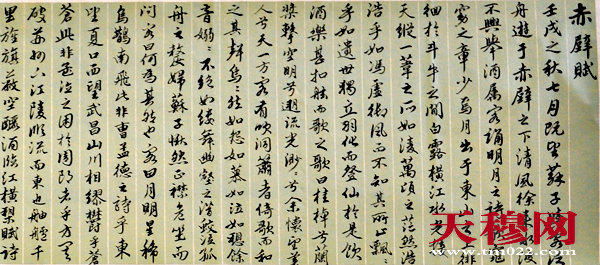 赤壁賦
壬戌之秋七月既望蘇子與客泛
舟遊于赤壁之下清風徐來水波
不興舉酒屬客誦明月之詩歌窈
窕之章少焉月出于東山之上徘
徊於斗牛之間白露橫江水光接
天縱一葦之所如凌萬頃之茫然浩
浩乎如馮虛御風而不知其所止飄飄
乎如遺世獨立羽化而登仙於是飲
酒樂甚扣舷而歌之歌曰桂棹兮蘭
槳擊空明兮溯流光渺渺兮余懷望美
人兮天一方客有吹洞簫者倚歌而和
之其聲嗚嗚然如怨如慕如泣如訴餘
音嫋嫋不絕如縷舞幽壑之潛蛟泣孤
舟之嫠婦蘇子愀然正襟危坐而
問客曰何為其然也客曰月明星稀
烏鵲南飛此非曹孟德之詩乎東
望夏口西望武昌山川相繆鬱乎蒼
蒼此非孟德之困於周郎者乎方其
破荊州下江陵順流而東也舳艫千
里旌旗蔽空釃酒臨江橫槊賦詩
天穆网
www.tm022.com